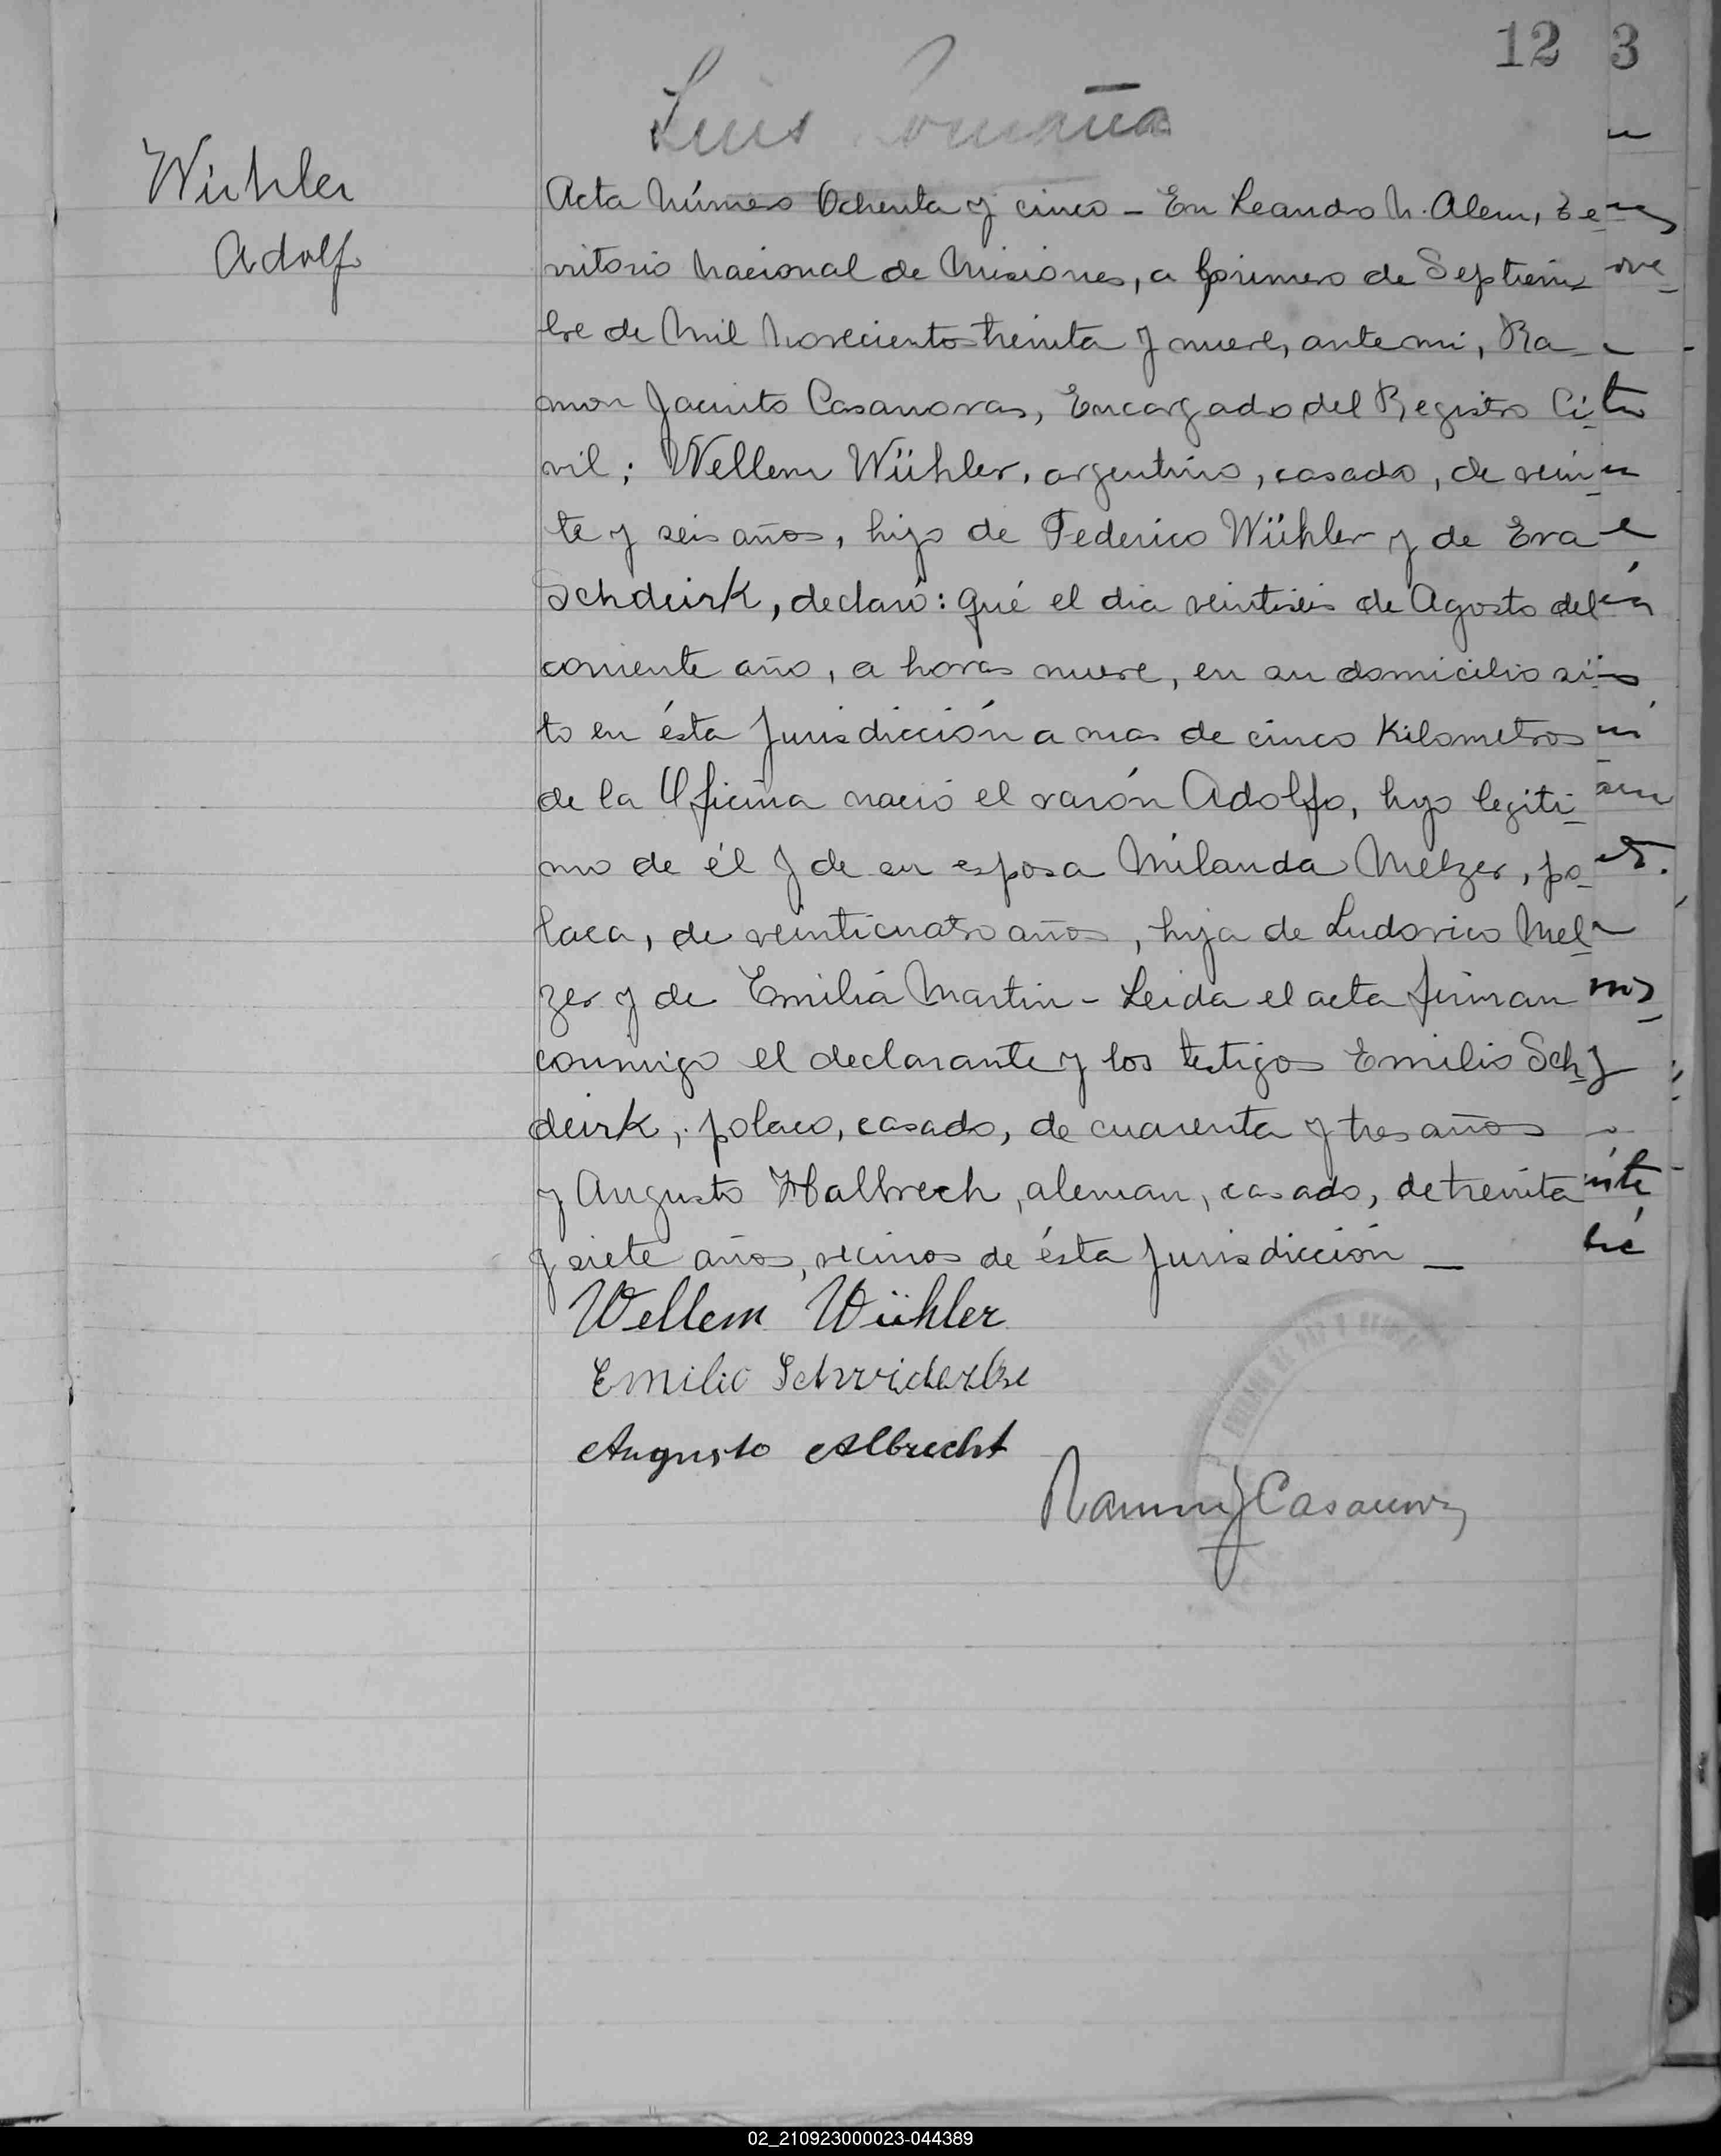 12 3
Luis
Wühler
Adolf
Acta Número Ochenta y cinco - En Leandro N. Alem, Te
rritorio Nacional de Misiones, a primero de Septiem
bre de Mil Novecientos treinta y nueve, ante mi, Ra-
mon Jacinto Casanovas, Encargado del Registro Ci-
vil; Wellem Wühler, argentino, casado, de vein-
te y seis años, hijo de Federico Wühler y de Eva
Schdeirk, declaró: Qué el dia veintiseis de Agosto del
corriente año, a horas nueve, en su domicilio si-
to en ésta Jurisdicción a mas de cinco Kilometros
de la Oficina nació el varón Adolfo, hijo legiti-
mo de él y de su esposa Milanda Melzer, po-
laca, de veinticuatro años, hija de Ludovico Mel-
zer y de Emilia Martin - Leida el acta firman
conmigo el declarante y los testigos Emilio Sch-
deirk, polaco, casado, de cuarenta y tres años
y Augusto Halbrech, aleman, casado, de treinta
y siete años, vecinos de ésta Jurisdicción _
Wellem Wühler
Emilio
Augusto Albrecht
Ramon J Casanovas
02_210923000023-044389